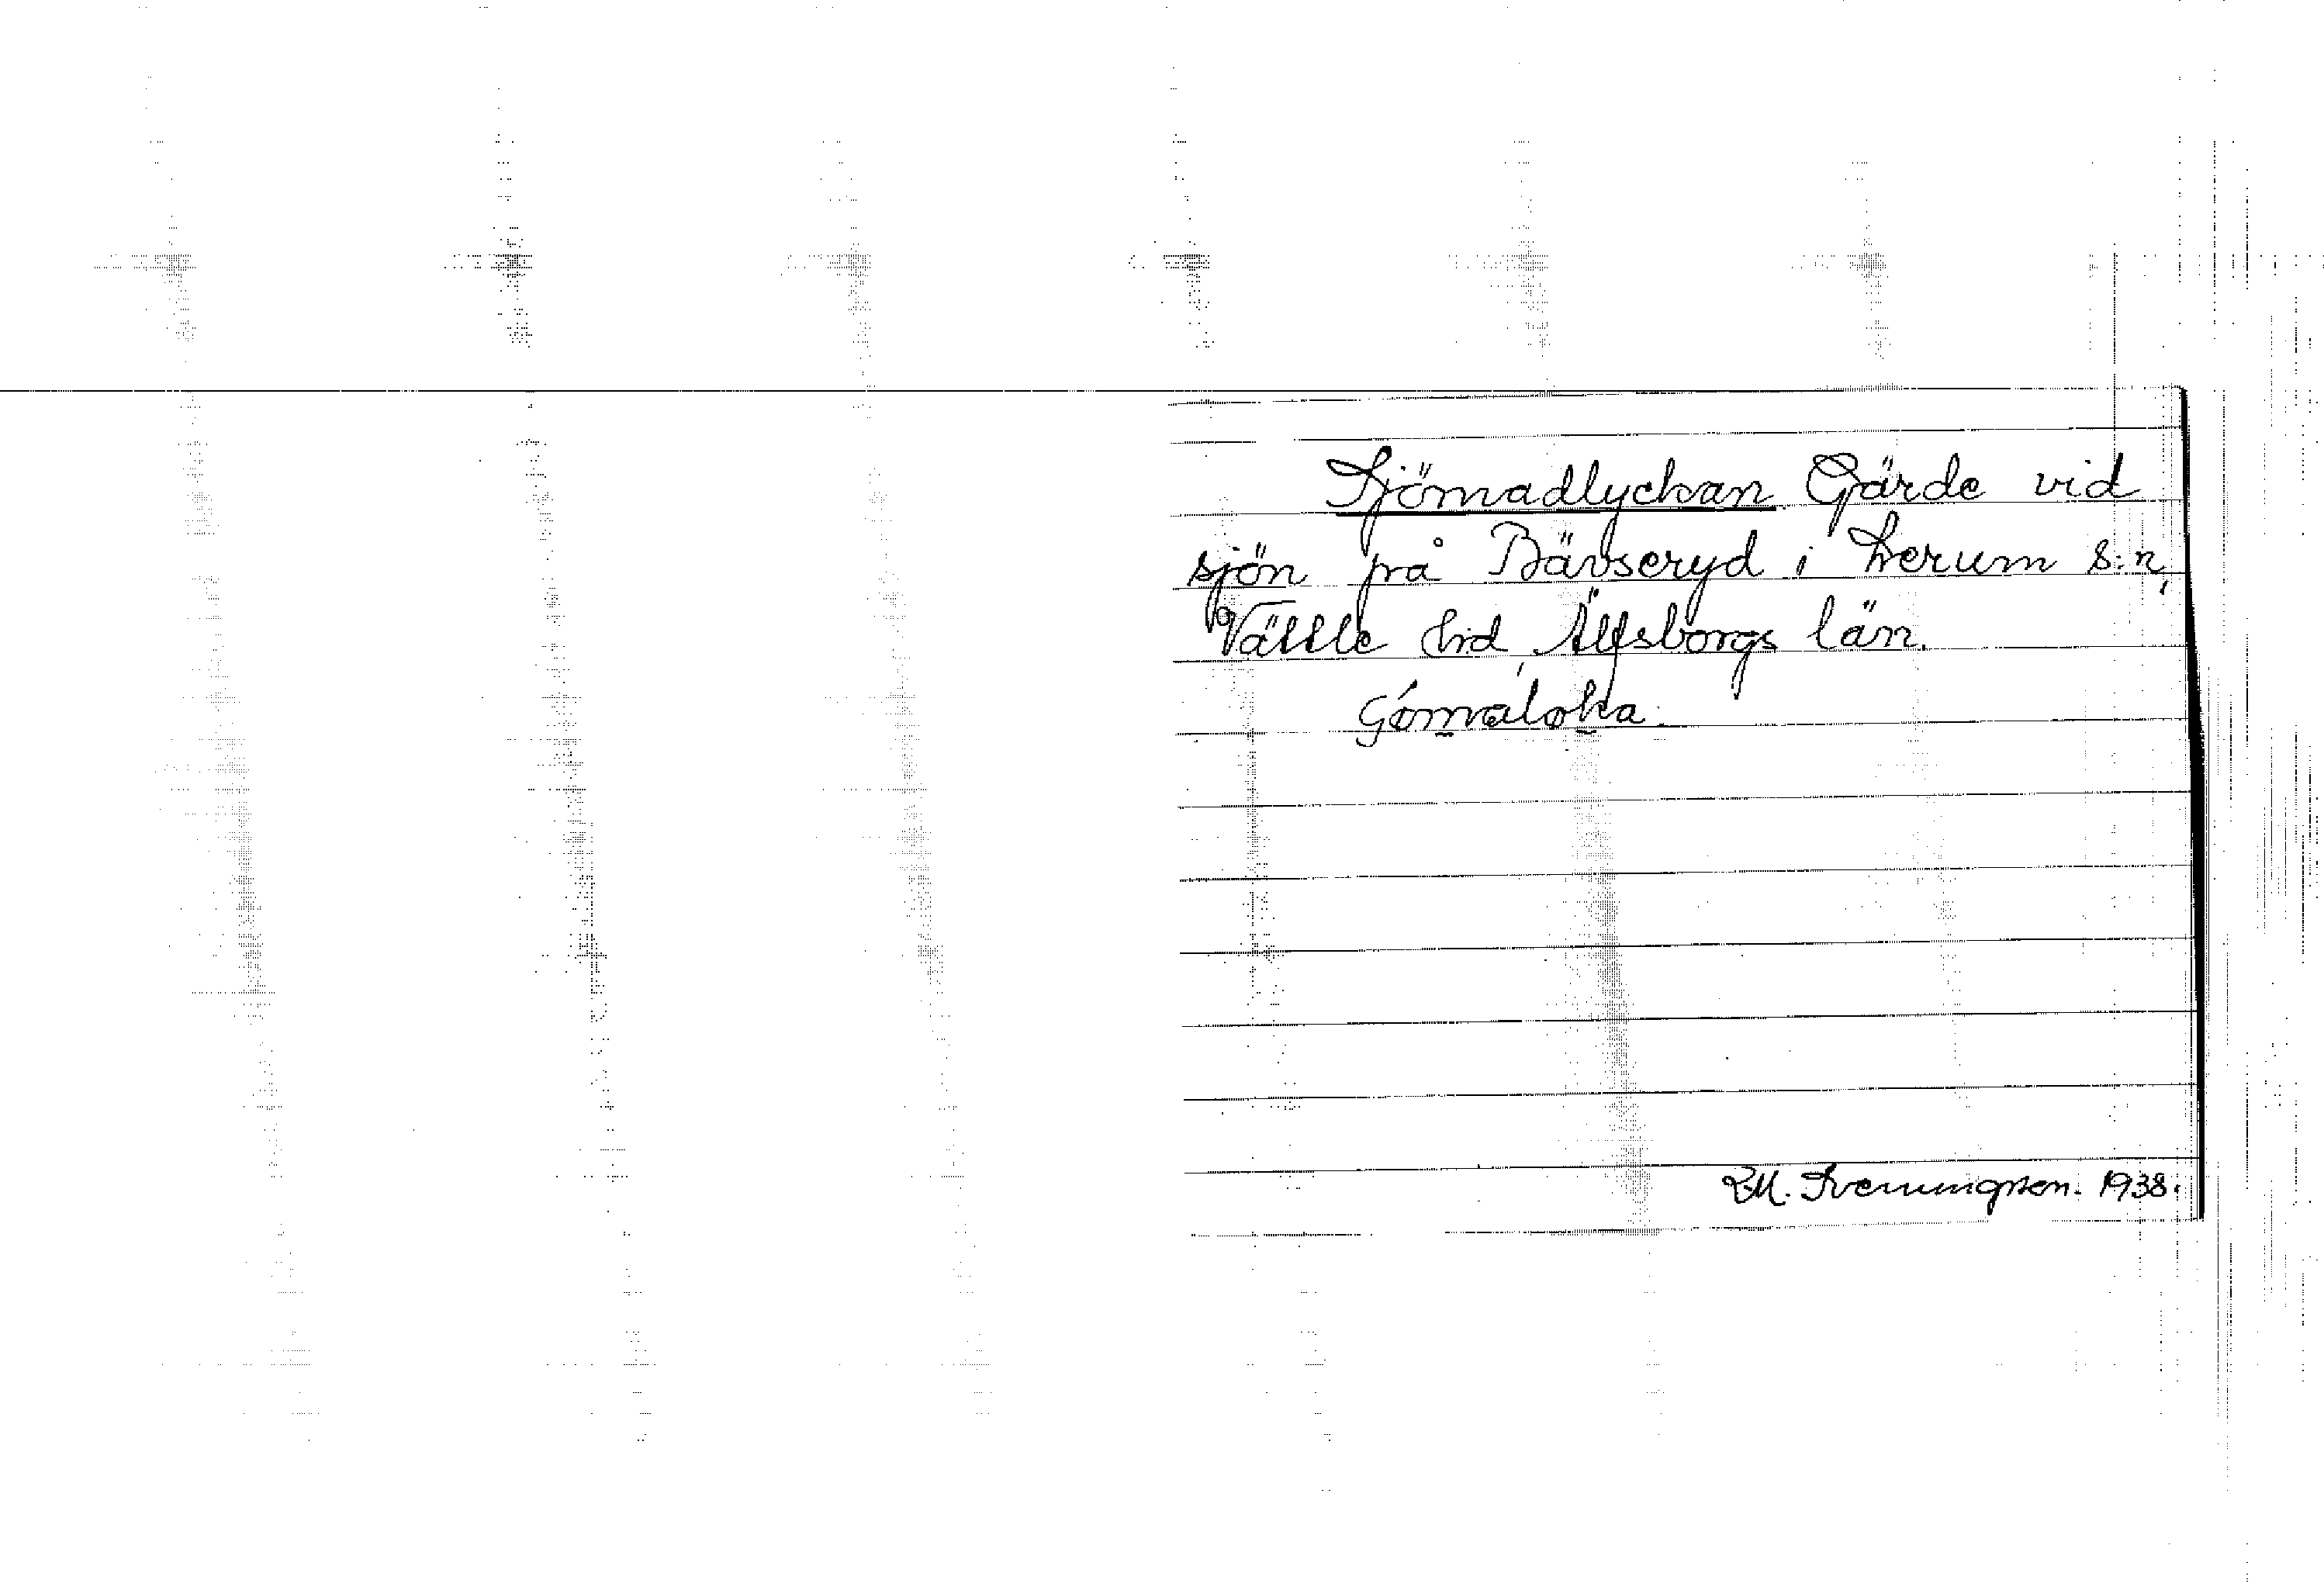 Sjömadlyckan Gärde vid
sjön på Bävseryd i Lerum s:n,
Vättle hd, Älfsborgs län.
R.M. Svenningson. 1938.